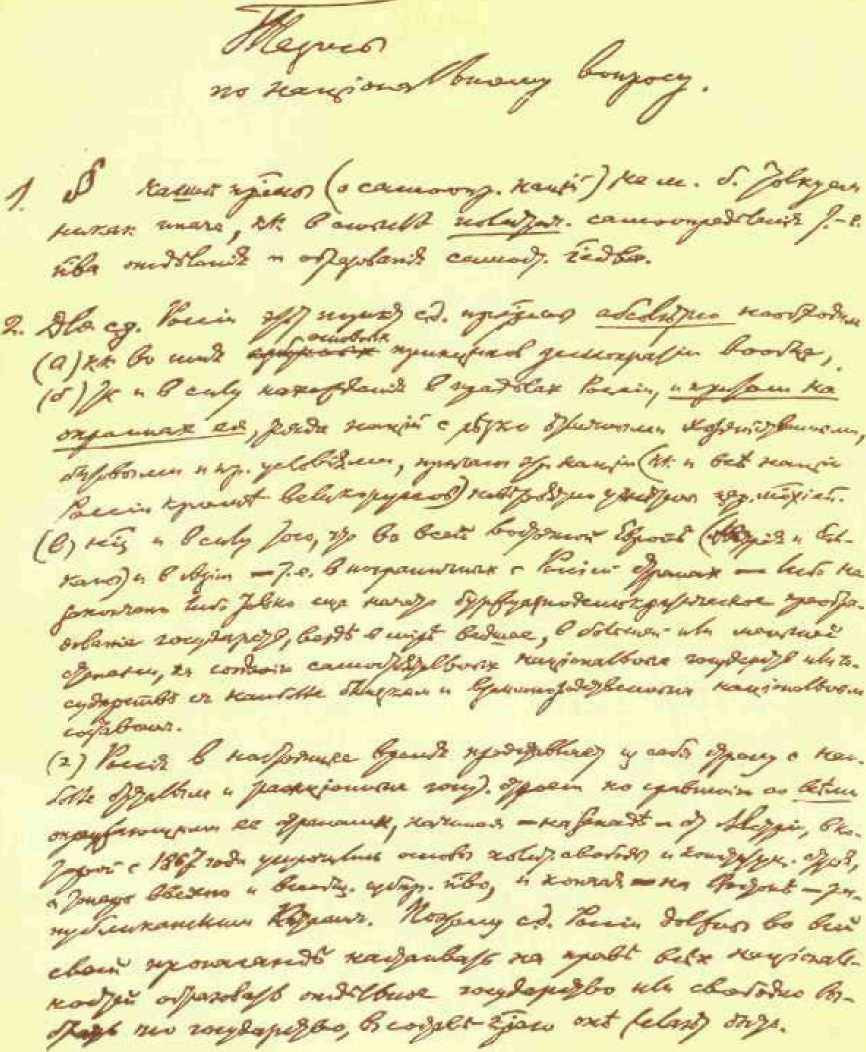 Тезисы
по національному вопросу.
1. § нашей пр̄мы (о самоопр. націй) не м. б. толкуем
никак иначе, кк в смысле политич. самоопределенія, т.-е.
пва отделенія и образованія самост. гсдва.
2. Для сд. Россіи этот пункт с.д. пр̄мы абсолютно необходим
(а) кк во имя основных принципов демократіи вообще,
(б) тк и в силу нахожденія в пределах Россіи, и притом на
окраинах ея, ряда націй с резко отличными хозяйственными,
бытовыми и пр. условіями, причем эти націи (кк и все націи
Россіи кроме великоруссов) невероятно угнетены цар. монархіей.
(в) и в силу того, что во всей восточной Европе (Австрія и Бал-
каны) и в Азіи — т.е. в пограничных с Россіей странах — либо не
закончено либо только еще начато буржуазнодемократическое преобра-
зованіе государств, везде в міре ведшее, в большей или меньшей
степени, к созданію самостоятельных національных государств или го-
сударств с наиболее близким и родственным національным
составом.
(г) Россія в настоящее время представляет из себя страну с наи-
более отсталым и реакціонным госуд. строем по сравненію со всеми
окружающими ее странами, начиная — на Западе — от Австріи, в ко-
торой с 1867 года упрочились основы полит. свободы и конституц. строя,
а теперь введено и всеобщ. избир. пво, и кончая — на Востоке — рес-
публиканским Китаем. Поэтому с.д. Россіи должны во всей
своей пропаганде настаивать на праве всех національ-
ностей образовать отдельное государство или свободно вы-
брать то государство, в составе крго оне желают быть.